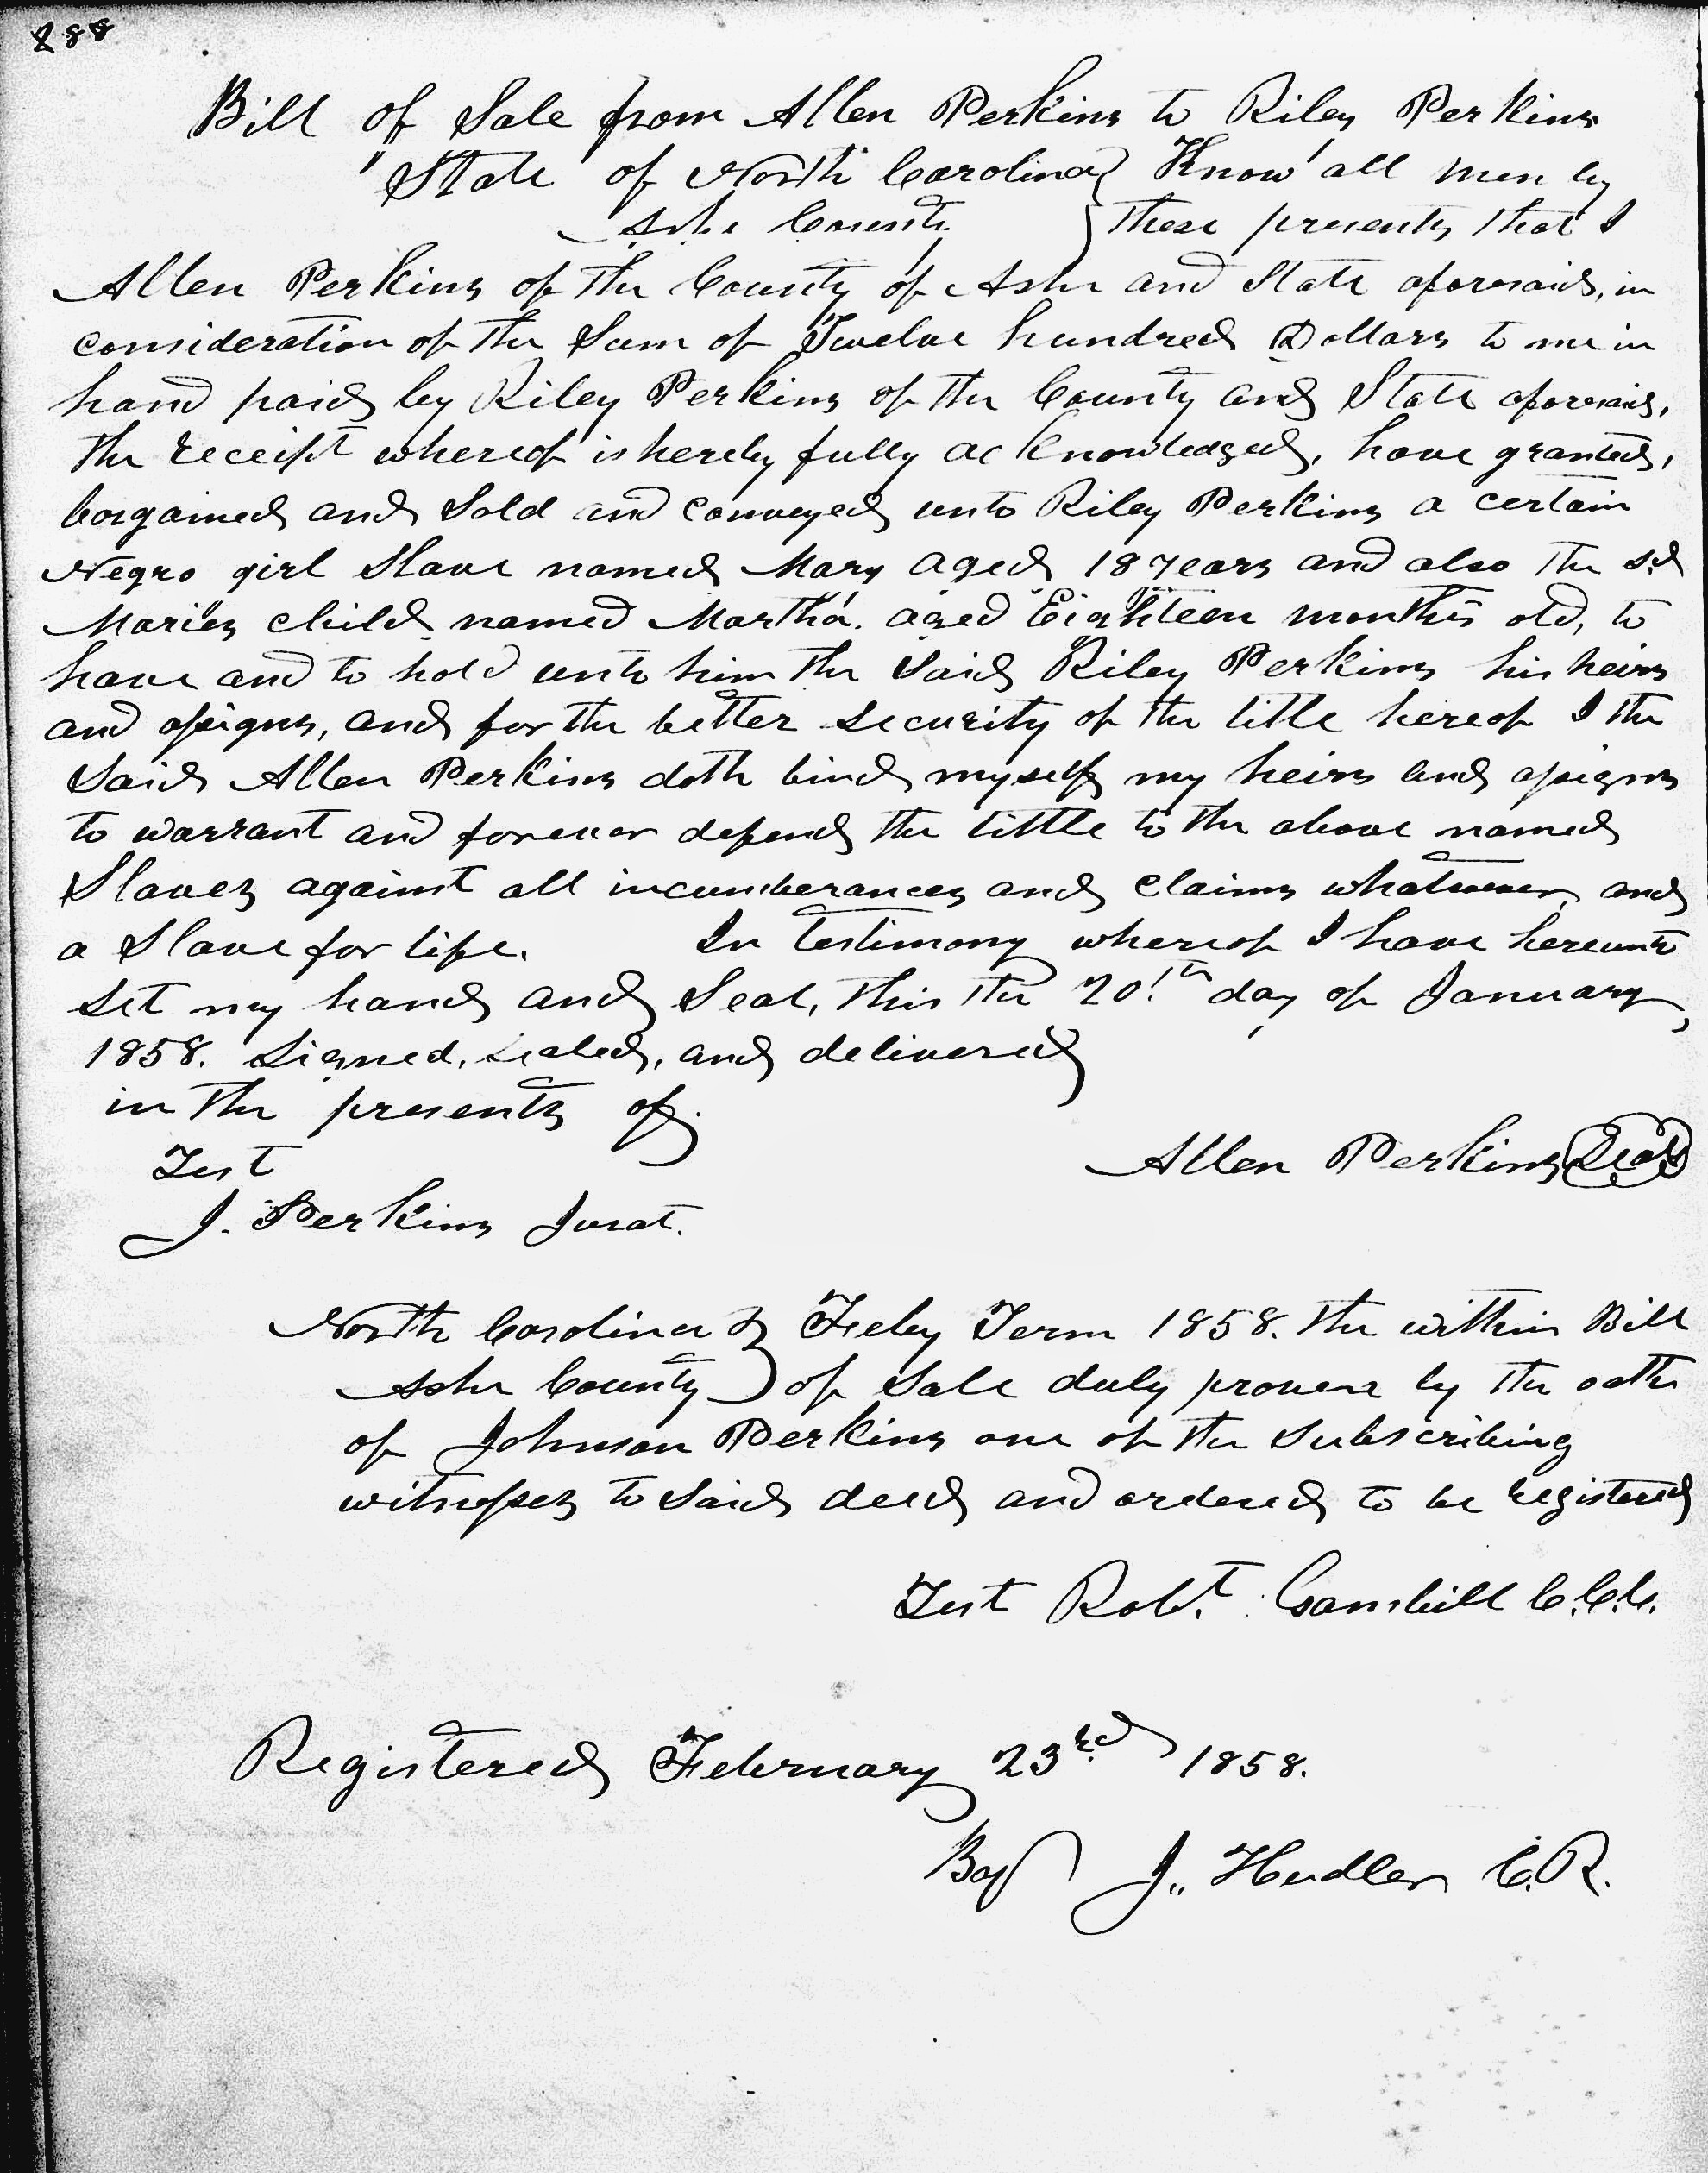 288
Bill of Sale from Allen Perkins to Riley Perkins
State of North Carolina } Know all men by
Ashe County } these presents that I
Allen Perkins of the County of Ashe and State aforesaid, in
consideration of the Sum of Twelve hundred Dollars to me in
hand paid by Riley Perkins of the County and State aforesaid,
the receipt whereof is hereby fully acknowledged, have granted,
bargained and Sold and conveyed unto Riley Perkins a certain
Negro girl Slave named Mary aged 18 years and also the sd
Maries child named Martha. aged Eighteen months old, to
have and to hold unto him the Said Riley Perkins his heirs
and assigns, and for the better security of the title hereof I the
Said Allen Perkins doth bind myself my heirs and assigns
to warrant and forever defend the tittle to the above named
Slaves against all incumberances and claims whatsoever, and
a Slave for life. In testimony whereof I have hereunto
set my hand and Seal, this the 20th day of January,
1858. Signed, sealed, and delivered
in the presents of
Test
Allen Perkins Seal
J. Perkins Jurat.
North Carolina } Feby Term 1858. The within Bill
Ashe County } of Sale duly proven by the oath
of Johnson Perkins one of the Subscribing
witnesses to Said deed and ordered to be registered
Test Robt. Gambill C.C.C.
Registered February 23rd 1858.
By J. Hudler C.R.